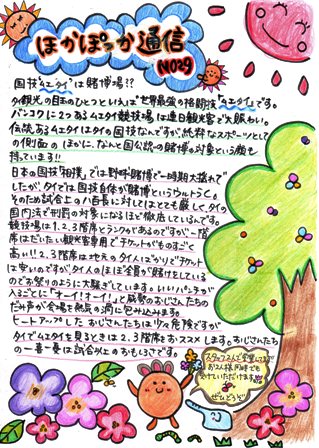 ほかぽっか通信
NO29
国技"ムエタイ"は賭博場!?
タイ観光の目玉のひとつといえば"世界最強の格闘技「ムエタイ」です。
バンコクに2つあるムエタイ競技場は連日観光客で大賑わい。
伝統あるムエタイはタイの国技なんですが、純粋なスポーツとして
の側面のほかに、なんと国公認の賭博の対象という顔も
持っています!!
日本の国技「相撲」では野球賭博で一時期大揺れで
したが、タイでは国技自体が賭博というウルトラC。
そのため試合上の八百長に対してはとても厳しく、タイの
国内法で刑罰の対象になるほど徹底しているんです。
競技場は1、2、3階席とランクがあるのですが、一階
席はだいたい観光客専用でチケットがものすごく
高い!! 2、3階席は地元のタイ人ばかりでチケット
は安いのですが、タイ人のほぼ全員が賭けをしている
のでお祭りのように大騒ぎしています。いいパンチが
入るごとに「オーイ!オーイ!」と威勢のおじさんたちの
だみ声が会場を熱気の渦に包み込みます。
ヒートアップしたおじさんたちは少々危険ですが
タイでムエタイを見るときは2、3階席をおススメします。おじさんたち
の一喜一憂は試合以上のおもしろさです。
スタッフ2人で営業してます
お2人様同時でも
受けていただけます
ぜひどうぞ